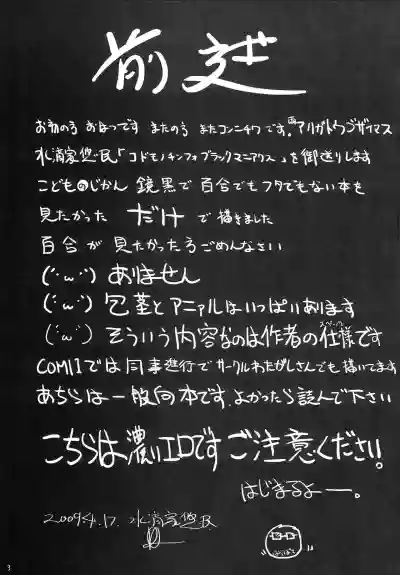 前文
お初の方 おはつです またの方 またコンニチワです。アリガトウゴザイマス
「コドモノキンフォブラックマニアクス」を御送りします
こどものじかん 鏡黒で百合でもフタでもない本を
見たかった だけで描きました
百合が見たかった方ごめんなさい
(´･ω･`) ありません
(´･ω･`) 包茎とアニャルはいっぱいあります
(´･ω･`) そういう内容なのは作者の仕様です
COMIIでは同事進行でサークルわたがしさんでも描いてます
あちらは一般向本です。よかったら読んで下さい
こちらは濃いエロです ご注意ください。
はじまるよー。
2009.4.17.
3